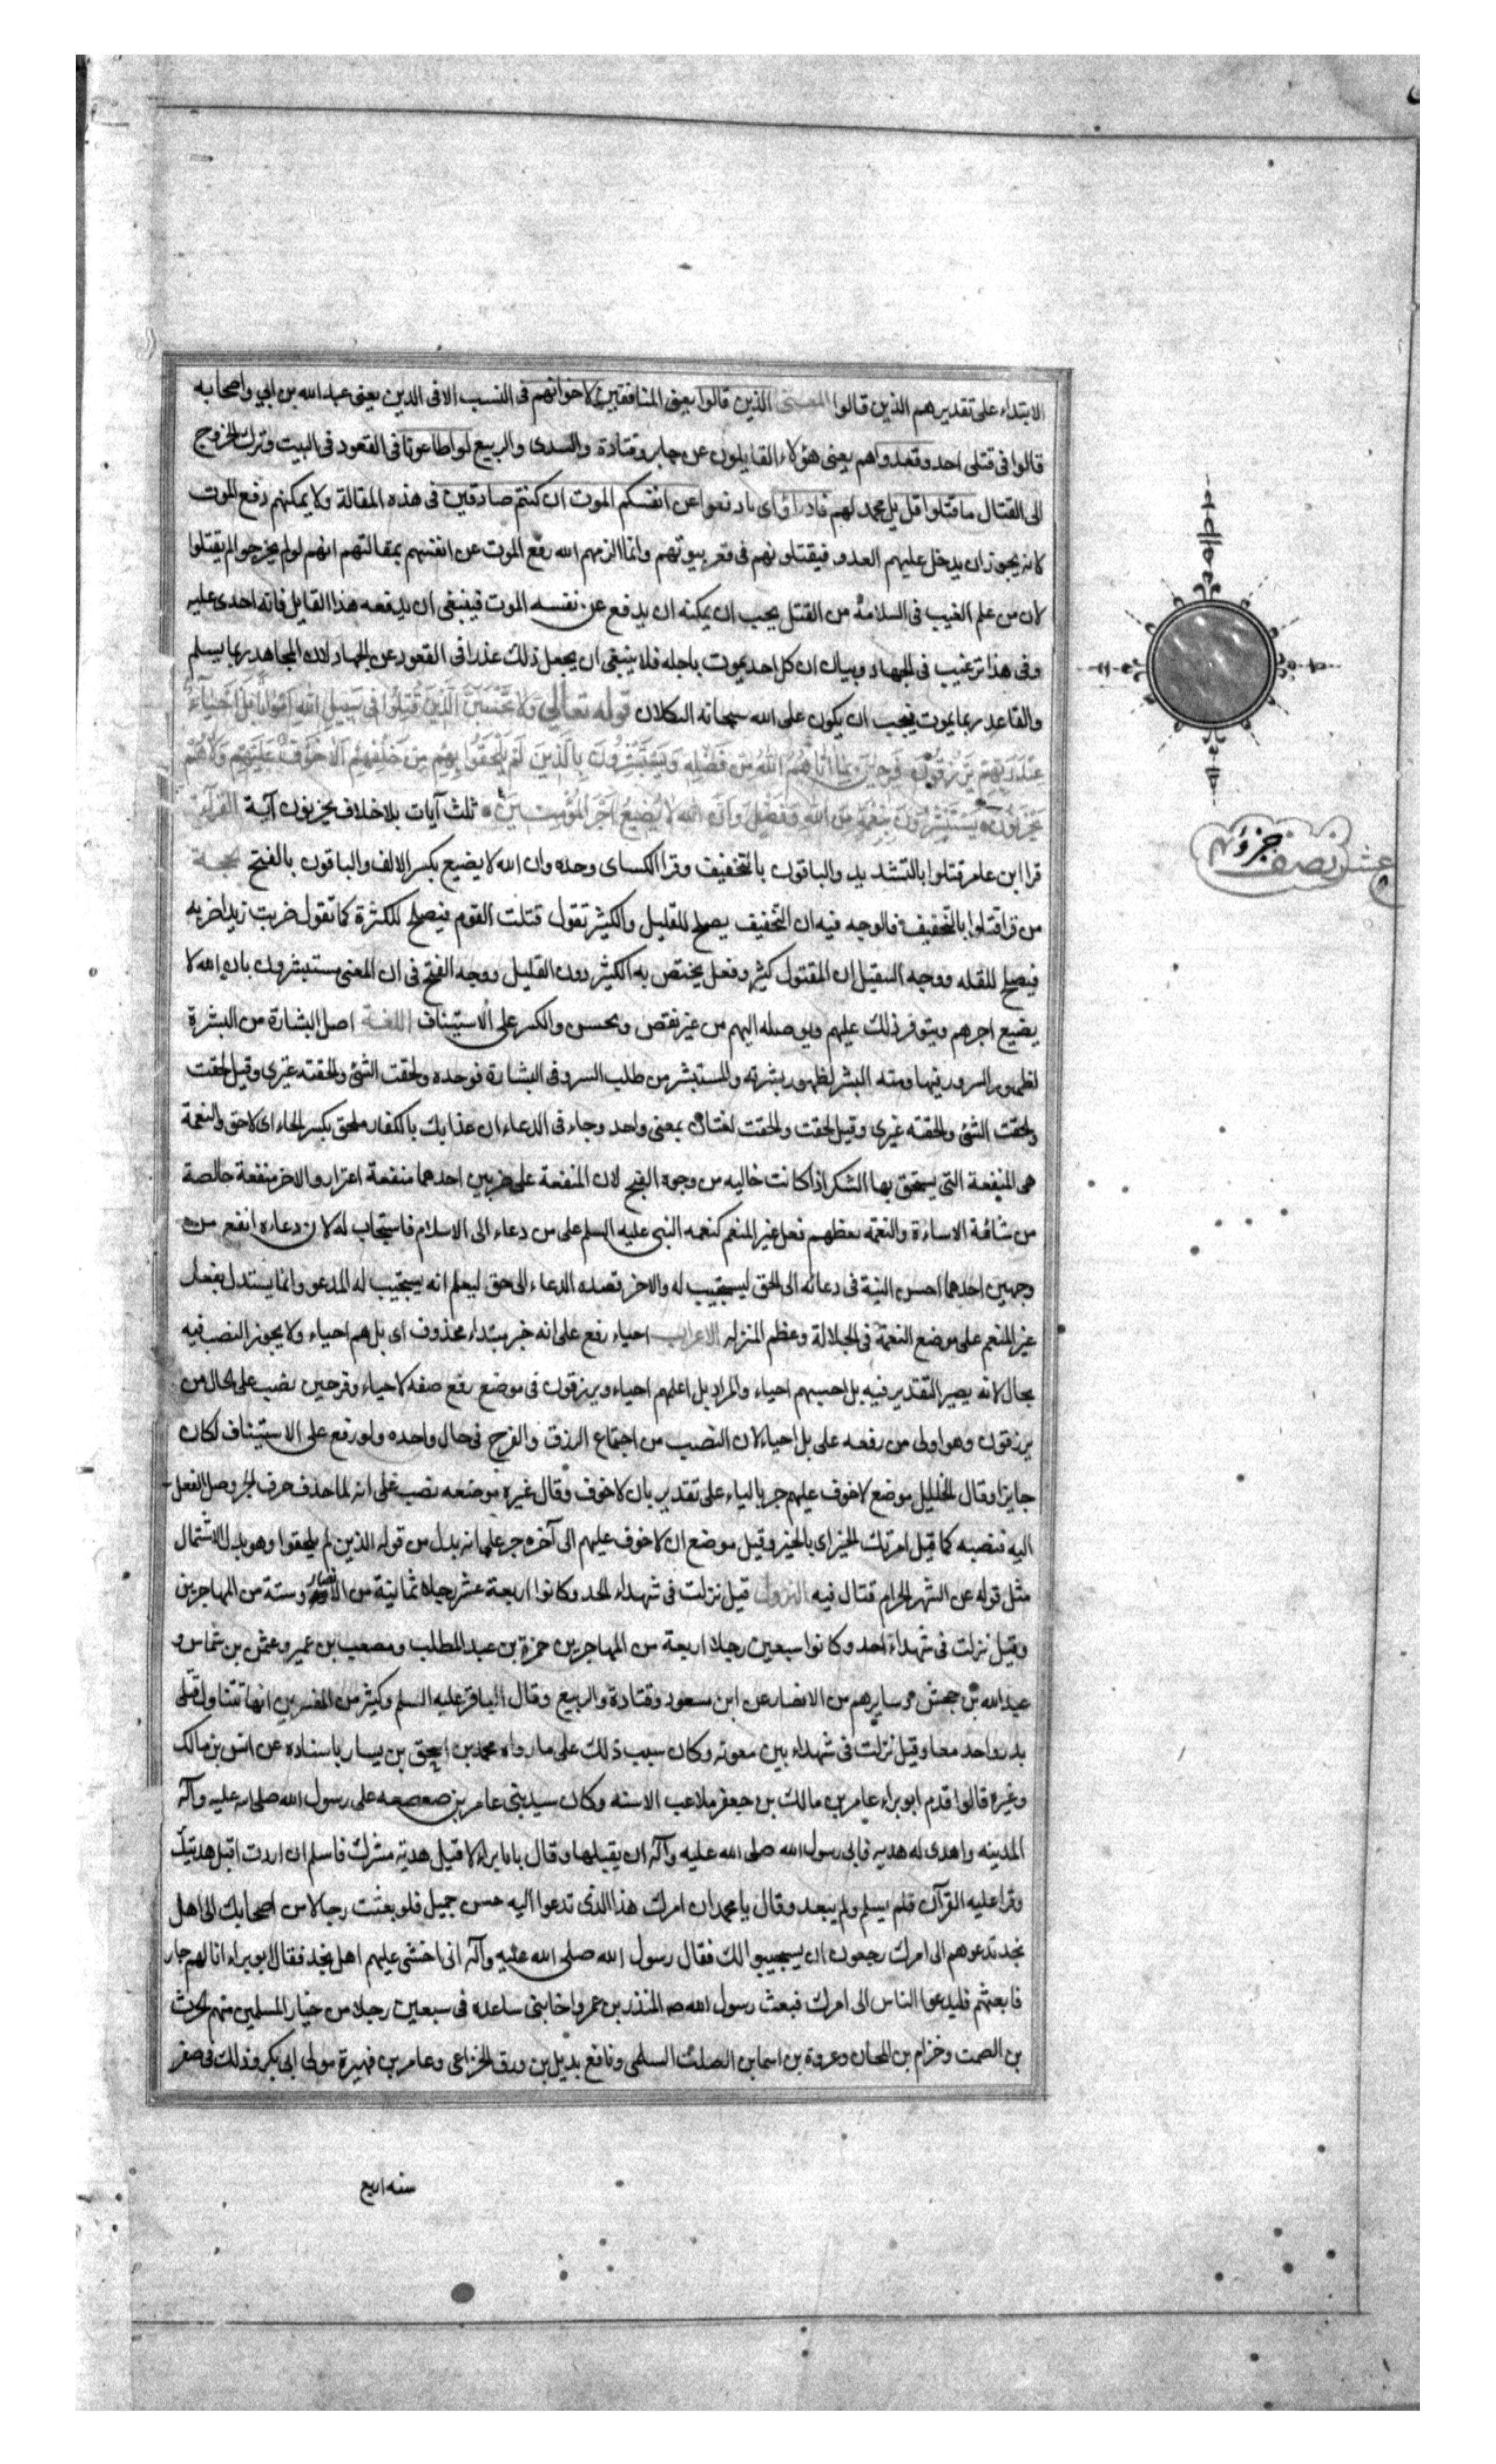 الابتداء على تقدير هم الذين قالوا المعنى الذين قالوا يعنى المنافقين لاخوانهم فى النسب لا فى الدين يعنى عبد الله بن ابي واصحابه
قالوا فى قتلى احد وقعدوا هم يعنى هؤلاء القايلون عن جابر وقتادة والسدى والربيع لو اطاعونا فى القعود فى البيت وترك الخروج
الى القتال ما قتلوا قل يا محمد لهم فادراؤا اى ادفعوا عن انفسكم الموت ان كنتم صادقين فى هذه المقالة ولا يمكنهم دفع الموت
لانه يجوز ان يدخل عليهم العدو فيقتلونهم فى قعر بيوتهم وانما الزمهم الله رفع الموت عن انفسهم بمقالتهم انهم لو لم يخرجوا لم يقتلوا
لان من علم الغيب فى السلامة من القتل يجب ان يمكنه ان يدفع عن نفسه الموت فينبغى ان يدفعه هذا القايل فانه اجدى عليه
وفى هذا ترغيب فى الجهاد وبيان ان كل احد يموت باجله فلا ينبغى ان يجعل ذلك عذرا فى القعود عن الجهاد لان المجاهد ربما يسلم
والقاعد ربما يموت فيجب ان يكون على الله سبحانه التكلان قوله تعالى وَلَا تَحْسَبَنَّ الَّذِينَ قُتِلُوا فِى سَبِيلِ اللهِ اَمْوَاتًا بَلْ اَحْيَآءٌ
عِنْدَ رَبِّهِمْ يُرْزَقُونَ فَرِحِينَ بِمَا اٰتَاهُمُ اللهُ مِنْ فَضْلِهِ وَيَسْتَبْشِرُونَ بِالَّذِينَ لَمْ يَلْحَقُوا بِهِمْ مِنْ خَلْفِهِمْ اَلَّا خَوْفٌ عَلَيْهِمْ وَلَا هُمْ
يَحْزَنُونَ يَسْتَبْشِرُونَ بِنِعْمَةٍ مِنَ اللهِ وَفَضْلٍ وَاَنَّ اللهَ لَا يُضِيعُ اَجْرَ الْمُؤْمِنِينَ ثلث آيات بلا خلاف يحزنون آية القراءة
قرا ابن عامر قتلوا بالتشديد والباقون بالتخفيف وقرا الكساى وحده وان الله لا يضيع بكسر الالف والباقون بالفتح الحجة
من قرا قتلوا بالتخفيف فالوجه فيه ان التخفيف يصلح للقليل والكثير تقول قتلت القوم فيصلح للكثرة كما تقول ضربت زيدا ضربه
فيصلح للقله ووجه التثقيل ان المقتول كثير وفعل يختص به الكثير دون القليل ووجه الفتح فى ان المعنى يستبشرون بان الله لا
يضيع اجرهم ويتوفر ذلك عليهم ويوصله اليهم من غير نقص وبخس والكسر على الاستيناف اللغة اصل البشارة من البشرة
لظهور السرور فيها ومنه البشر لظهور بشرته والمستبشر من طلب السرور فى البشارة فوجده ولحقت الشئ والحقته غيرى وقيل لحقت
ولحقت الشئ والحقته غيرى وقيل لحقت والحقت لغتان بمعنى واحد وجاء فى الدعاء ان عذابك بالكفار ملحق بكسر الحاء اى لاحق والنعمة
هى المنفعة التى يستحق بها الشكر اذا كانت خاليه من وجوه القبح لان المنفعة على ضربين احدهما منفعة اعترار والاخر منفعة خالصة
من شائبة الاساءة والنعمة تعظم بفعل غير المنعم كنعمه النبى عليه السلم على من دعاء الى الاسلام فاستجاب له لان دعاءه انفع من
وجهين احدهما احسن النية فى دعائه الى الحق ليستجيب له والاخر قصده الدعاء الى حق ليعلم انه يستجيب له المدعو وانما يستدل بفعل
غير المنعم على موضع النعمة فى الجلالة وعظم المنزله الاعراب احياء رفع على انه خبر مبتداء محذوف اى بل هم احياء ولا يجوز النصب فيه
بحال لانه يصير التقدير فيه بل احسبهم احياء والمراد بل اعلمهم احياء ويرزقون فى موضع رفع صفه لاحياء وفرحين نصب على الحال من
يرزقون وهو اولى من رفعه على بل احياء لان النصب من اجتماع الرزق والفرح فى حال واحده ولو رفع على الاستيناف لكان
جايزا وقال الخليل موضع لا خوف عليهم جر بالباء على تقدير بان لا خوف وقال غيره موضعه نصب على انه لما حذف حرف الجر وصل الفعل
اليه فنصبه كما قيل امرتك الخير اى بالخير وقيل موضع ان لا خوف عليهم الى آخره جر على انه بدل من قوله الذين لم يلحقوا وهو بدل الاشتمال
مثل قوله عن الشهر الحرام قتال فيه النزول قيل نزلت فى شهداء احد وكانوا اربعة عشر رجلا ثمانية من الانصار وستة من المهاجرين
وقيل نزلت فى شهداء احد وكانوا سبعين رجلا اربعة من المهاجرين حمزة بن عبد المطلب ومصعب بن عمير وعثمن بن شماس و
عبد الله بن جحش وسايرهم من الانصار عن ابن مسعود وقتادة والربيع وقال الباقر عليه السلم وكثير من المفسرين انها تتناول قتلى
بدر واحد معا وقيل نزلت فى شهداء بير معونه وكان سبب ذلك على ما رواه محمد بن اسحق بن يسار باسناده عن انس بن مالك
وغيره قالوا قدم ابو براء عامر بن مالك بن جعفر ملاعب الاسنه وكان سيد بنى عامر بن صعصعه على رسول الله صلى الله عليه وآله
المدينه واهدى له هديه فابى رسول الله صلى الله عليه وآله ان يقبلها وقال يا ابا براء لا اقبل هدية مشرك فاسلم ان اردت اقبل هديتك
وقرا عليه القرآن فلم يسلم ولم يبعد وقال يا محمد ان امرك هذا الذى تدعوا اليه حسن جميل فلو بعثت رجالا من اصحابك الى اهل
نجد تدعوهم الى امرك رجوت ان يستجيبوا لك فقال رسول الله صلى الله عليه وآله انى اخشى عليهم اهل نجد فقال ابو براء انا لهم جار
فابعثهم فليدعوا الناس الى امرك فبعث رسول الله ص المنذر بن عمرو اخا بنى ساعده فى سبعين رجلا من خيار المسلمين منهم الحرث
بن الصمت وخزام بن الحان وعروة بن اسما بن الصلت السلمى ونافع بديل بن ورق الخزاعى وعامر بن فهيرة مولى ابى بكر وذلك فى صفر
سنه اربع
عشر نصف جزؤهم